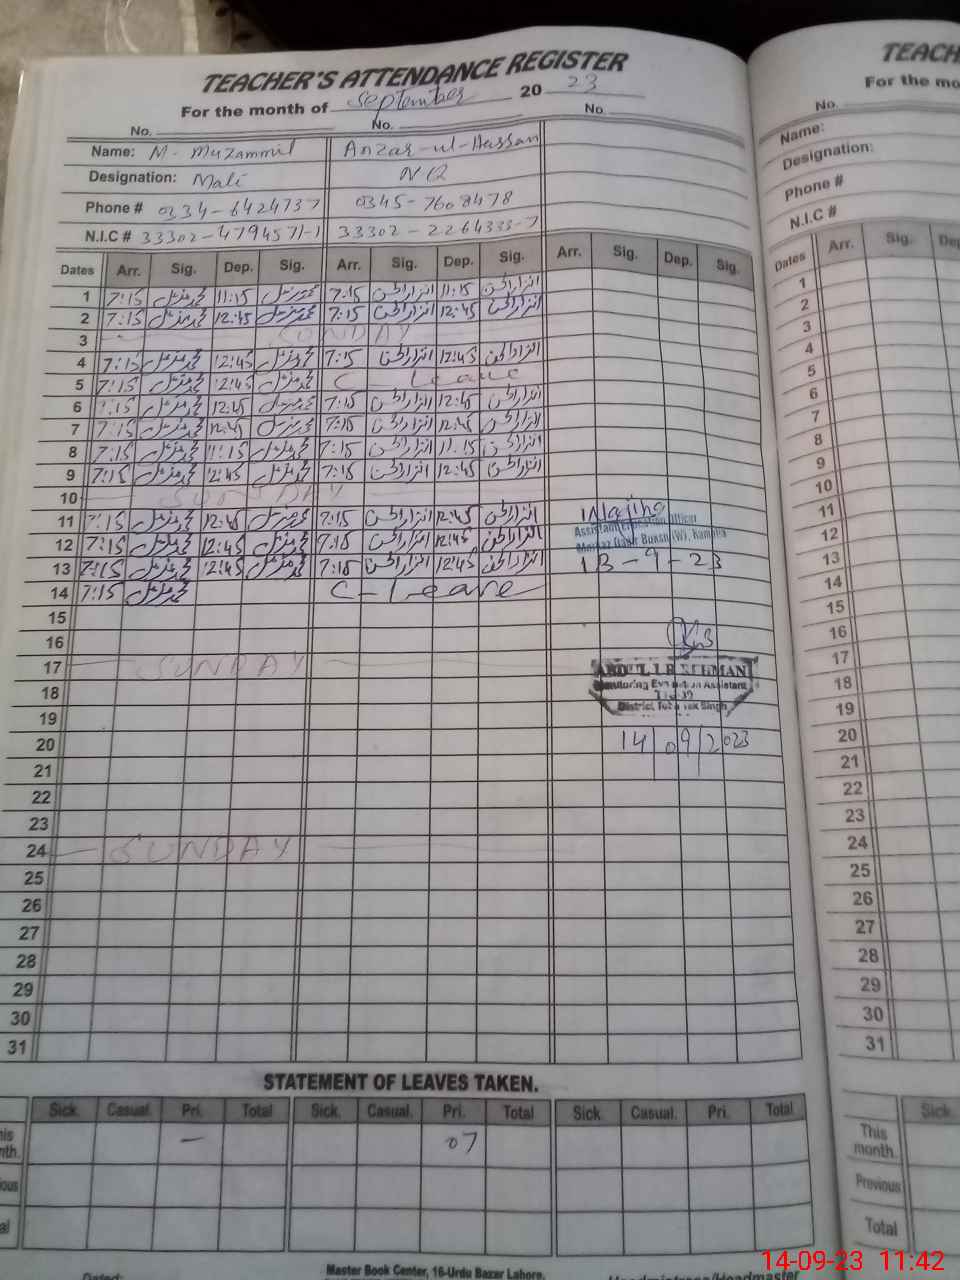 TEACHER'S ATTENDANCE REGISTER
For the month of September 20 23
No. No. No.
Name: M. Muzammil Anzar-ul-Hassan
Designation: Mali NQ
Phone # 0334-6424737 0345-7608478
N.I.C # 33302-4794571-1 33302-2264333-7
Dates Arr. Sig. Dep. Sig. Arr. Sig. Dep. Sig. Arr. Sig. Dep. Sig.
1 7:15 محمد مزمل 11:15 محمد مزمل 7:15 انزارالحسن 11:15 انزارالحسن
2 7:15 محمد مزمل 12:45 محمد مزمل 7:15 انزارالحسن 12:45 انزارالحسن
3 SUNDAY
4 7:15 محمد مزمل 12:45 محمد مزمل 7:15 انزارالحسن 12:45 انزارالحسن
5 7:15 محمد مزمل 12:45 محمد مزمل C - Leave
6 7:15 محمد مزمل 12:45 محمد مزمل 7:15 انزارالحسن 12:45 انزارالحسن
7 7:15 محمد مزمل 12:45 محمد مزمل 7:15 انزارالحسن 12:45 انزارالحسن
8 7:15 محمد مزمل 11:15 محمد مزمل 7:15 انزارالحسن 11:15 انزارالحسن
9 7:15 محمد مزمل 12:45 محمد مزمل 7:15 انزارالحسن 12:45 انزارالحسن
10 SUNDAY
11 7:15 محمد مزمل 12:45 محمد مزمل 7:15 انزارالحسن 12:45 انزارالحسن
12 7:15 محمد مزمل 12:45 محمد مزمل 7:15 انزارالحسن 12:45 انزارالحسن
Assistant Education Officer
13 7:15 محمد مزمل 12:45 محمد مزمل 7:15 انزارالحسن 12:45 انزارالحسن 13-9-23
14 7:15 محمد مزمل C - Leave
15
16
17 SUNDAY
ABDUL REHMAN
18
Monitoring Evaluation Assistant
19
District Toba Tek Singh
20 14/09/2023
21
22
23
24 SUNDAY
25
26
27
28
29
30
31
STATEMENT OF LEAVES TAKEN.
Sick. Casual. Pri. Total Sick. Casual. Pri. Total Sick. Casual. Pri. Total
— 07
Master Book Center, 16-Urdu Bazar Lahore.
Headmistress/Headmaster
TEACH
For the mo
No.
Name:
Designation:
Phone #
N.I.C #
Dates Arr. Sig. De
1
2
3
4
5
6
7
8
9
10
11
12
13
14
15
16
17
18
19
20
21
22
23
24
25
26
27
28
29
30
31
Sick
This
month.
Previous
Total
14-09-23 11:42